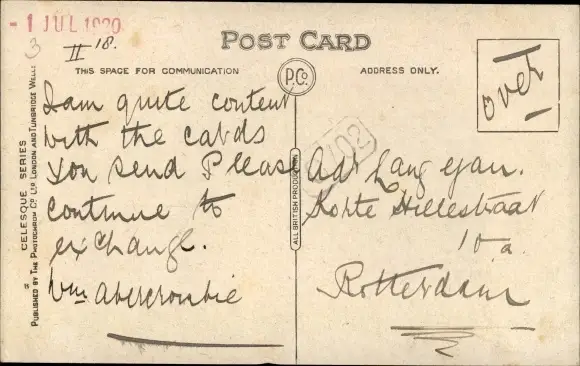 - 1 JUL 1920
3
II 18.
POST CARD
THIS SPACE FOR COMMUNICATION
P.Co.
ADDRESS ONLY.
over
I am quite content
with the cards
you send Please
continue to
exchange.
Wm Abercrombie
Adr Langejan.
Korte Hillestraat
10 a.
Rotterdam
CELESQUE SERIES
PUBLISHED BY THE PHOTOCHROM CO. LTD LONDON AND TUNBRIDGE WELLS
ALL BRITISH PRODUCTION